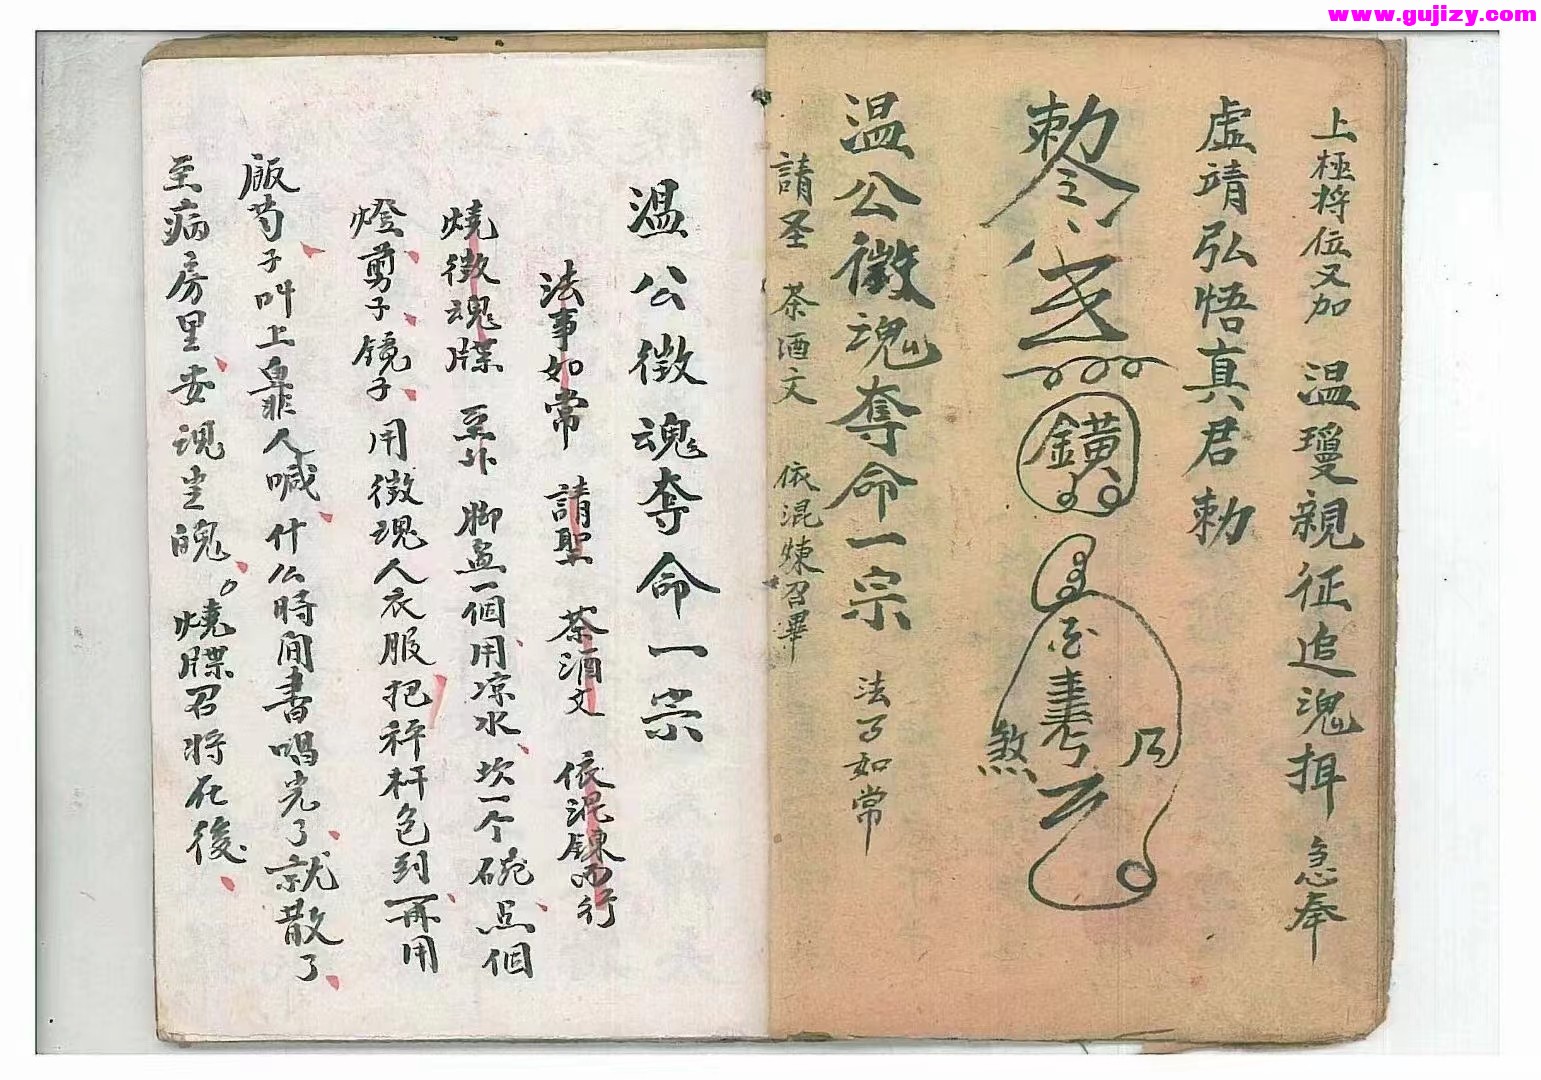 www.gujizy.com
上極將位又加 温瓊親征追魂拘 急奉
虛靖弘悟真君勅
勅令
鐄
煞
乃
温公徵魂奪命一宗 法事如常
請圣 茶酒文 依混煉召畢
溫公徵魂奪命一宗
法事如常 請聖 茶酒文 依混鍊而行
燒徵魂牒 至外 脚盆一個用凉水坎一个碗点個
燈剪子鏡子用徵魂人衣服把秤杆包到再用
飯芍子叫上靠人喊什么時间書唱完了就散了
至病房里安魂坐魄。燒牒召将在後